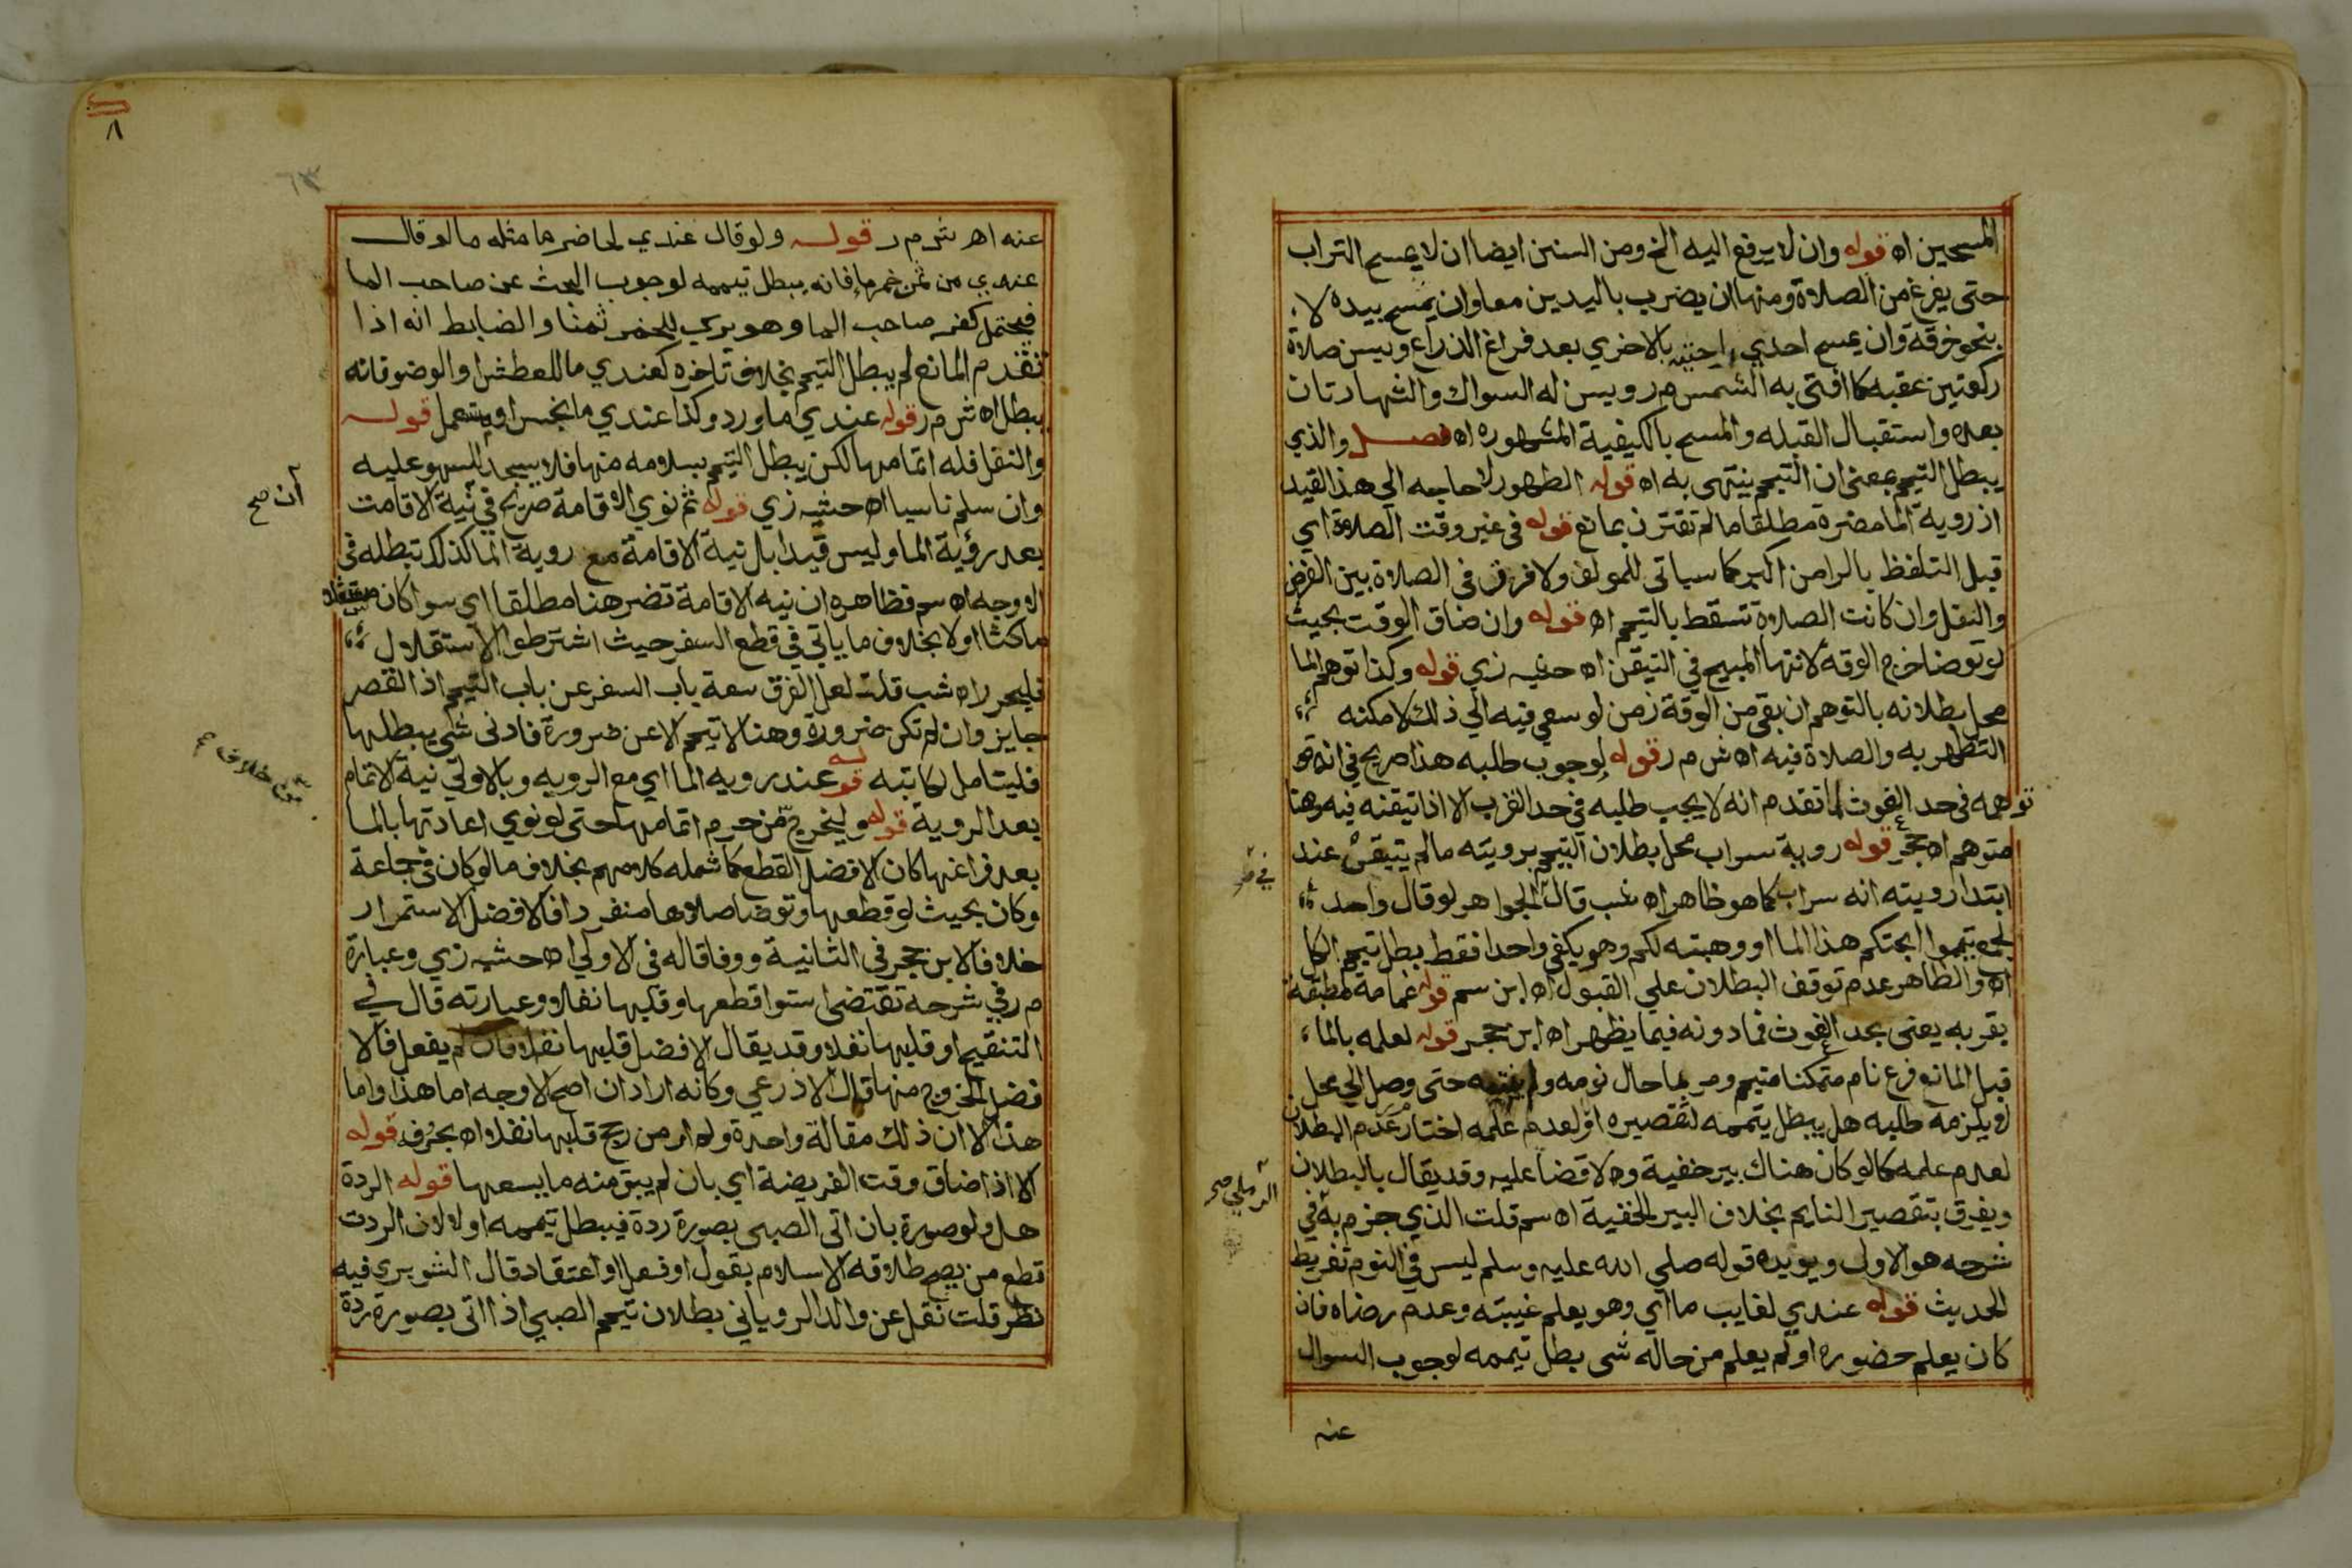 المسحين اه قوله وان لا يرفع اليه الخ ومن السنن ايضا ان لا يمسح التراب
حتى يفرغ من الصلاة ومنها ان يضرب باليدين معا وان يمسح بيده لا
بنحو خرقة وان يمسح احدي راحتيه بالاخري بعد فراغ الذراع ويسن صلاة
ركعتين عقبه كما افتى به الشمس م ر ويسن له السواك والشهادتان
بعده واستقبال القبله والمسح بالكيفية المشهوره اه فصل والذي
يبطل التيمم بمعنى ان التيمم ينتهى به اه قوله الطهور لا حاجه الي هذا القيد
اذ روية الما مضرة مطلقا ما لم تقترن بمانع قوله في غير وقت الصلاة اي
قبل التلفظ بالرا من اكبر كما سياتى للمولف ولا فرق في الصلاة بين الفرض
والنفل وان كانت الصلاة تسقط بالتيمم اه قوله وان ضاق الوقت بحيث
لو توضا خرج الوقه لانتها المبيح في التيقن اه حشيه زي قوله وكذا توهم الما
محل بطلانه بالتوهم ان بقي من الوقة زمن لو سعي فيه الي ذلك لامكنه
التطهر به والصلاة فيه اه ش م ر قوله لوجوب طلبه هذا صريح في انه
توهمه في حد الغوث لما تقدم انه لا يجب طلبه في حد القرب الا اذا تيقنه فيه وهنا
متوهم اه حجر قوله روية سراب محل بطلان التيمم برويته ما لم يتيقن عند
في مر
ابتدا رويته انه سراب كما هو ظاهر اه شب قال الجواهر لو قال واحد
لجمع تيمموا ابحتكم هذا الما او وهبته لكم وهو يكفي واحدا فقط بطل تيمم الكل
اه والظاهر عدم توقف البطلان علي القبول اه ابن سم قوله غمامة مطبقة
بقربه يعنى بحد الغوث فما دونه فيما يظهر اه ابن حجر قوله لعلمه بالما
قبل المانع فرع نام متمكنا متيمم ومر بما حال نومه ولم ينتبه حتى وصل الي محل
لو يلزمه طلبه هل يبطل تيممه لتقصيره او لعدم علمه اختار مر عدم البطلان
لعدم علمه كما لو كان هناك بير خفية ولا قضا عليه وقد يقال بالبطلان
الرملي صح
ويفرق بتقصير النايم بخلاف البير الخفية اه سم قلت الذي جزم به في
شرحه هو الاول ويويده قوله صلي الله عليه وسلم ليس في النوم تفريط
الحديث قوله عندي لغايب ما اي وهو يعلم غيبته وعدم رضاه فان
كان يعلم حضوره او لم يعلم من حاله شى بطل تيممه لوجوب السوال
عنه
٨
٦٣
عنه اه ش م ر قوله ولو قال عندي لحاضر ما مثله ما لو قال
عندي من ثمن خمر ما فانه يبطل تيممه لوجوب البحث عن صاحب الما
فيحتمل كفر صاحب الما وهو يري للخمر ثمنا والضابط انه اذا
تقدم المانع لم يبطل التيمم بخلاف تاخره كعندي ما للعطش او الوضو فانه
يبطل اه ش م ر قوله عندي ما ورد وكذا عندي ما نجس او مستعمل قوله
والنفل فله اتمامها لكن يبطل التيمم بسلامه منها فلا يسجد للسهو عليه
وان سلم ناسيا اه حشيه زي قوله ثم نوي الاقامة صريح في نية الاقامت
ان صح
بعد رؤية الما وليس قيدا بل نية الاقامة مع روية الما كذلك تبطله في
الاوجه اه سم فظاهره ان نيه الاقامة تضر هنا مطلقا اي سوا كان مستقلا
ماكثا اولا بخلاف ما ياتي في قطع السفر حيث اشترطوا الاستقلال
فليحرر اه شب قلت لعل الفرق سعة باب السفر عن باب التيمم اذ القصر
جايز وان لم تكن ضرورة وهنا لا تيمم الا عن ضرورة فادنى شى يبطلها
فليتامل لكاتبه قوله عند رويه الما اي مع الرويه وبالاولي نية الاتمام
بعد الروية قوله وليخرج من حرم اتمامها حتى لو نوي اعادتها بالما
بعد فراغها كان الافضل القطع كما شمله كلامهم بخلاف ما لو كان في جماعة
وكان بحيث لو قطعها وتوضا صلاها منفردا فالافضل الاستمرار
خلافا لابن حجر في الثانية ووفاقا له في الاولي اه حشيه زي وعبارة
م ر في شرحه تقتضى استوا قطعها وقلبها نفلا وعبارته قال في
التنقيح او قلبها نفلا وقد يقال الافضل قلبها نفلا فان لم يفعل فالا
فضل الخروج منها قال الاذرعي وكانه اراد ان اصح الاوجه اما هذا واما
هذا لا ان ذلك مقالة واحدة ولم ار من رجح قلبها نفلا اه بحرفه قوله
الا اذا ضاق وقت الفريضة اي بان لم يبق منه ما يسعها قوله الردة
هل ولو صورة بان اتى الصبى بصورة ردة فيبطل تيممه اولا لان الردت
قطع من يصح طلاقه الاسلام بقول او فعل او اعتقاد قال الشوبري فيه
نظر قلت نقل عن والد الروياني بطلان تيمم الصبي اذا اتى بصورة ردة